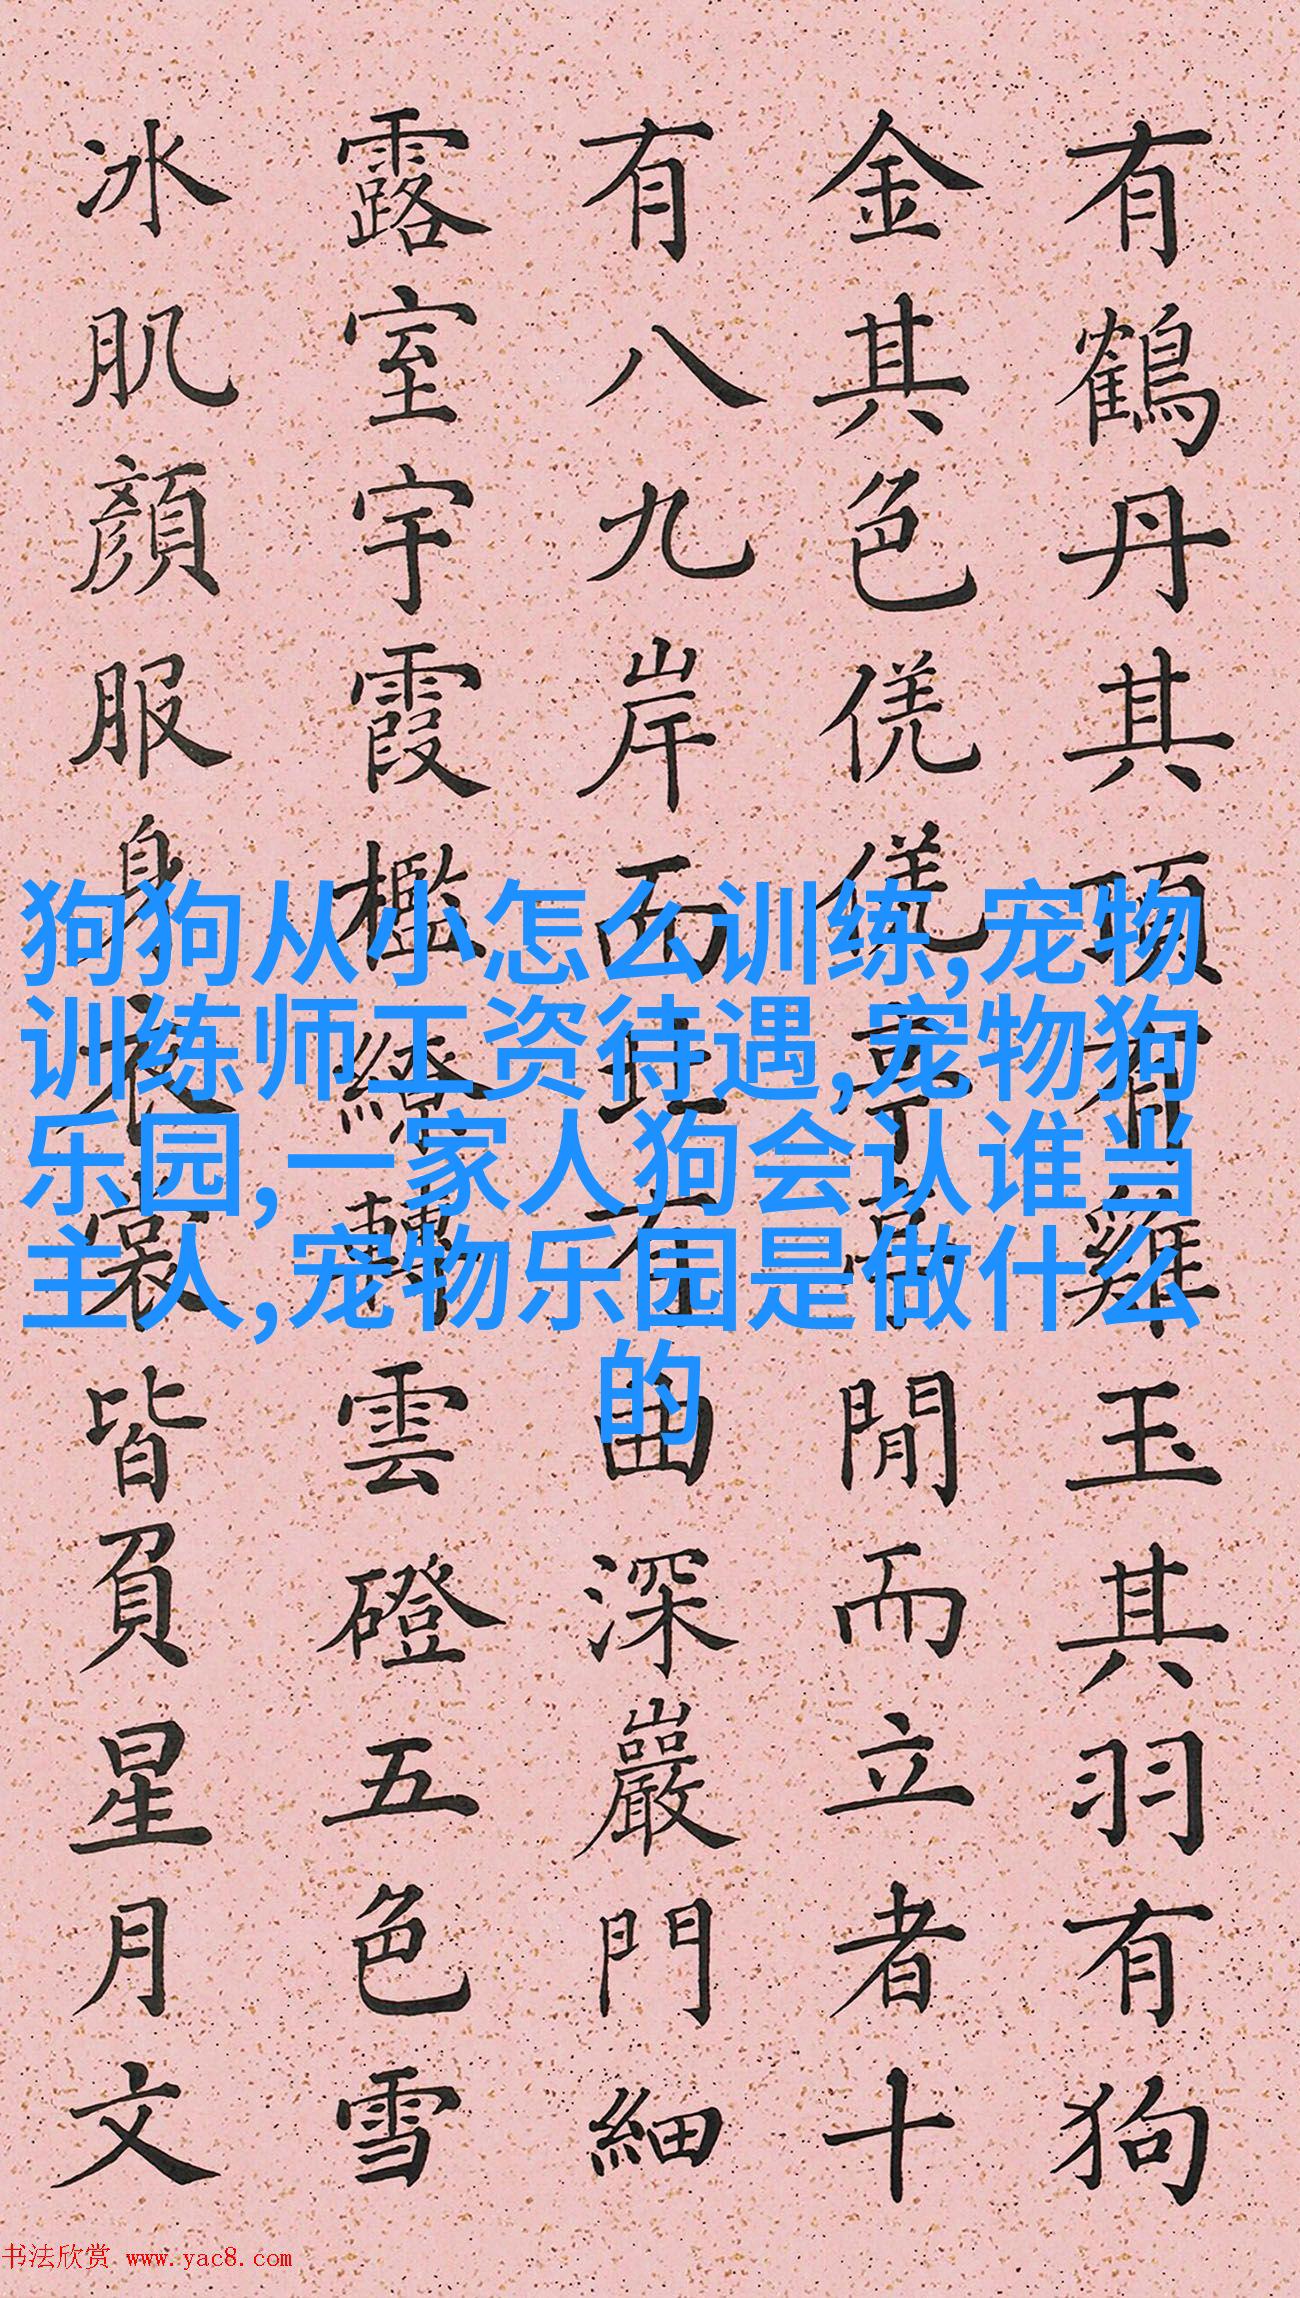 有鶴丹其頂有雞玉其羽有狗
金其色侁侁亭亭閒而立者十
有八九岸西曲深巖門細
露室宇霞檻轉雲磴五色雪
冰肌顏服身衣裳皆負星月文
狗狗从小怎么训练,宠物
训练师工资待遇,宠物狗
乐园,一家人狗会认谁当
主人,宠物乐园是做什么
的
书法欣赏 www.yac8.com